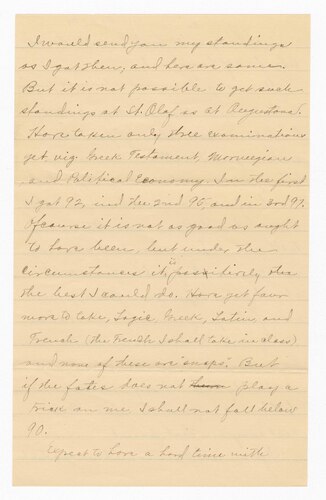 I would send you my standings
as I got them, and here are some.
But it is not possible to get such
standings at St. Olaf as at Augustana.
Have taken only three examinations
yet viz. Greek Testament, Norwegian
and Political Economy. In the first
I got 92, in the 2nd 95, and in 3rd 97.
Ofcourse it is not as good as ought
to have been, but under the
circumstances it is possitively the
the best I could do. Have yet four
more to take, Logic, Greek, Latin, and
French (the French I shall take in class)
and none of these are "snaps". But
if the fates does not play a
trick on me I shall not fall below
90.
Expect to have a hard time with